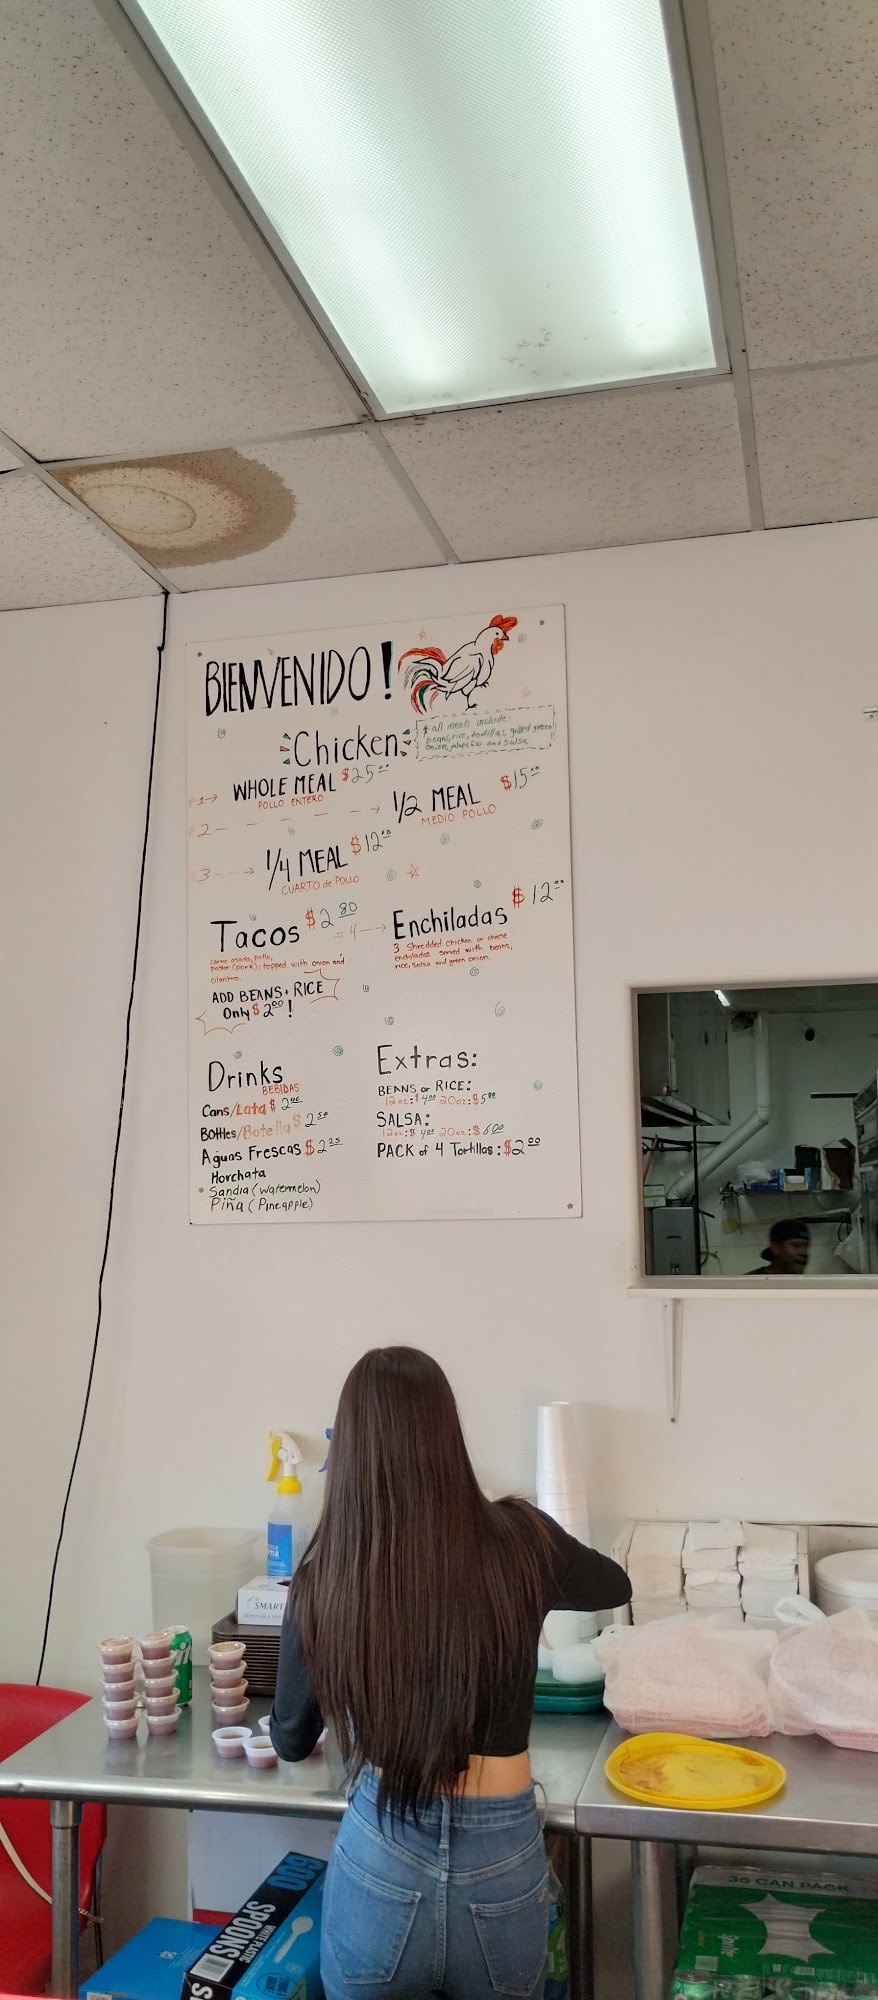 BIENVENIDO!
Chicken
* all meals include:
beans, rice, tortillas, grilled green
onion, jalapeños and salsa
#1→ WHOLE MEAL $25.00
POLLO ENTERO
#2 → 1/2 MEAL $15.00
MEDIO POLLO
#3 → 1/4 MEAL $12.00
CUARTO de POLLO
Tacos $2.80
carne asada, pollo,
pastor (pork); topped with onion and
cilantro.
ADD BEANS + RICE
Only $2.00!
#4 → Enchiladas $12.00
3 Shredded chicken or cheese
enchiladas served with beans,
rice, salsa and green onion.
Drinks
BEBIDAS
Cans/Lata $2.00
Bottles/Botella $2.50
Aguas Frescas $2.25
Horchata
Sandia (watermelon)
Piña (Pineapple)
Extras:
BEANS or RICE:
12oz:$4.00 20oz:$5.00
SALSA:
12oz:$4.00 20oz:$6.00
PACK of 4 Tortillas: $2.00
SMART
600
SPOONS
WHITE PLASTIC
35 CAN PACK
Sprite